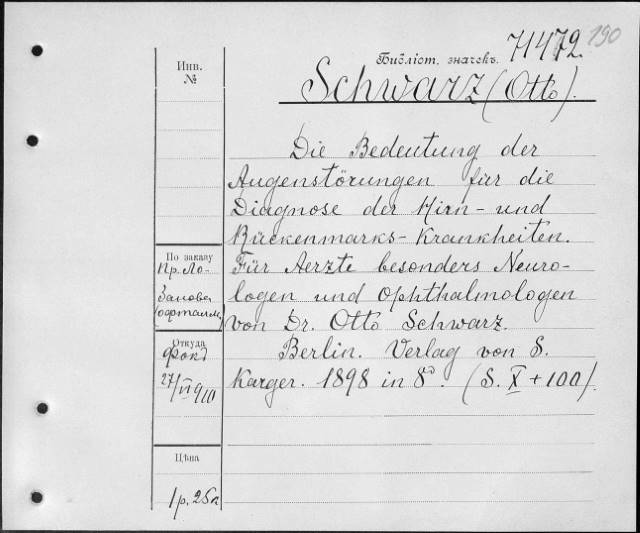 71472. 190
Библіот. значекъ.
Schwarz (Otto).
Инв.
№
Die Bedeutung der
Augenstörungen für die
Diagnose der Hirn- und
Rückenmarks-Krankheiten.
Für Aerzte besonders Neuro-
logen und Ophthalmologen
von Dr. Otto Schwarz.
Berlin. Verlag von S.
Karger. 1898 in 8º. (S. X + 100).
По заказу
Пр. Ло-
занова
(офталм.)
Откуда
Фокъ
27/VI 910
Цѣна
1 р. 25 к